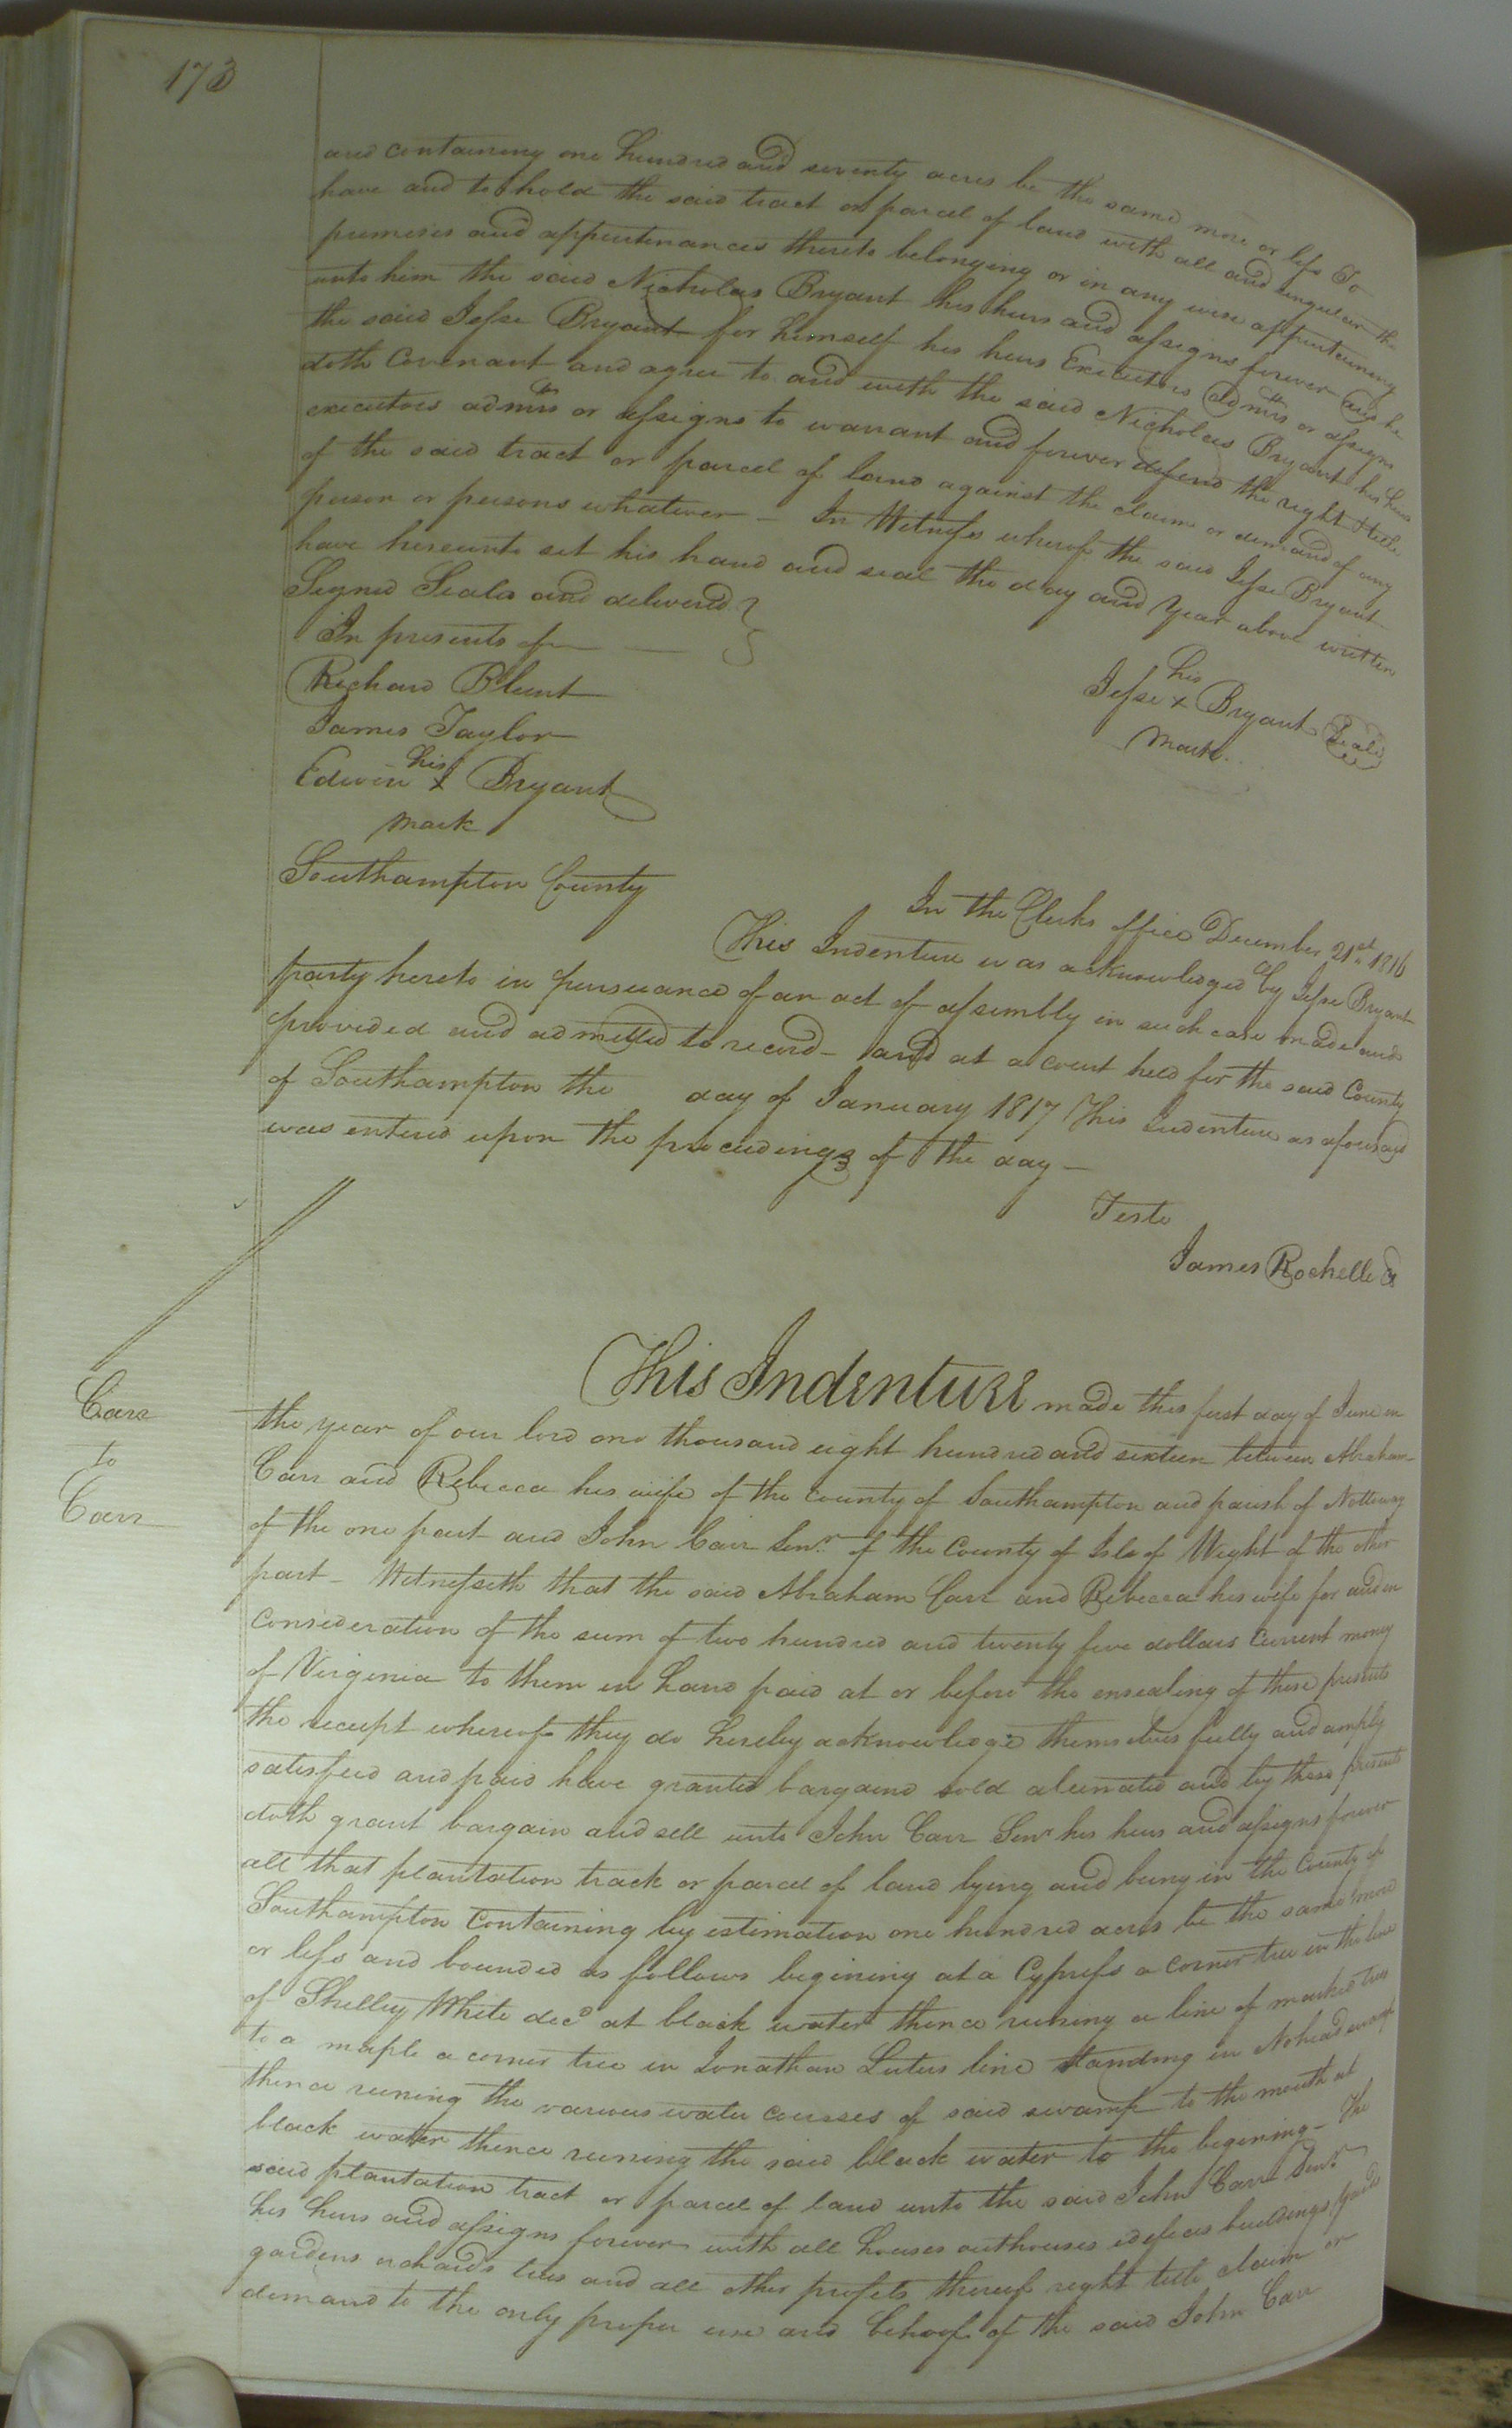 173
and containing one hundred and seventy acres be the same more or less To
have and to hold the said tract or parcel of land with all and singular the
premises and appurtenances thereto belonging or in any wise appurtaining
unto him the said Nicholas Bryant his heirs and assigns forever and he
the said Jesse Bryant for himself his heirs Executors Admrs or assigns
doth Covenant and agree to and with the said Nicholas Bryant his heirs
executors admrs or assigns to warrant and forever defend the right & title
of the said tract or parcel of land against the claim or demand of any
person or persons whatever – In Witness whereof the said Jesse Bryant
have hereunto set his hand and seal the day and Year above written
Signed Seald and delivered
In presents of
his
Jesse x Bryant Seal
mark
Richard Blunt
James Taylor
his
Edwin x Bryant
mark
Southampton County
In the Clerks office December 21st 1816
This Indenture was acknowledged by Jesse Bryant
party hereto in pursuance of an act of assembly in such case made and
provided and admitted to record – and at a court held for the said County
of Southampton the day of January 1817 This Indenture as aforesaid
was entered upon the proceedings of the day –
Teste
James Rochelle
Carr
to
Carr
This Indenture made this first day of June in
the year of our lord one thousand eight hundred and sixteen between Abraham
Carr and Rebecca his wife of the county of Southampton and parish of Nottoway
of the one part and John Carr Senr of the County of Isle of Wight of the other
part – Witnesseth that the said Abraham Carr and Rebecca his wife for and in
consideration of the sum of two hundred and twenty five dollars Current money
of Virginia to them in hand paid at or before the ensealing of these presents
the receipt whereof they do hereby acknowledge themselves fully and amply
satisfied and paid have granted bargaind sold alienated and by these presents
doth grant bargain and sell unto John Carr Senr his heirs and assigns forever
all that plantation track or parcel of land lying and being in the County of
Southampton Containing by estimation one hundred acres be the same more
or less and bounded as follows begining at a Cypress a corner tree in the line
of Shelley White decd at black water thence runing a line of marked trees
to a maple a corner tree in Jonathan Luters line standing in Nohead swamp
thence runing the various water courses of said swamp to the mouth at
black water thence runing the said black water to the begining – The
said plantation tract or parcel of land unto the said John Carr Senr
his heirs and assigns forever with all houses outhouses edifices buildings yards
gardens orchards trees and all other profits thereof right title claim or
demand to the only proper use and behoof of the said John Carr